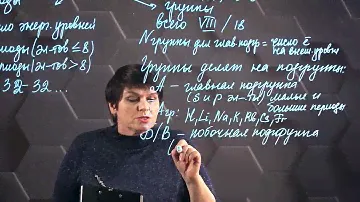 ло энерг. уровней
риоды (эл-тов ≤ 8)
риоды (эл-тов > 8)
32-32 ...
группы
всего VIII / 18
N группы для глав. подгр. = число ē
на внеш. уровне
Группы делят на подгруппы:
А - главная подгруппа
(s и p эл-ты) - малые и
большие периоды
H, Li, Na, K, Rb, Cs, Fr
Д/В - побочная подгруппа